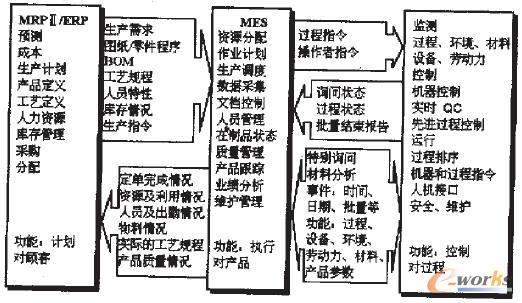 MRPⅡ/ERP
预测
成本
生产计划
产品定义
工艺定义
人力资源
库存管理
采购
分配
功能：计划
对顾客
生产需求
图纸/零件程序
BOM
工艺规程
人员特性
库存情况
生产指令
定单完成情况
资源及利用情况
人员及出勤情况
物料情况
实际的工艺规程
产品质量情况
MES
资源分配
作业计划
生产调度
数据采集
文档控制
人员管理
在制品状态
质量管理
产品跟踪
业绩分析
维护管理
功能：执行
对产品
过程指令
操作者指令
询问状态
过程状态
批量结束报告
特别询问
材料分析
事件：时间、
日期、批量等
功能：过程、
设备、环境、
劳动力、材料、
产品参数
监测
过程、环境、材料
设备、劳动力
控制
机器控制
实时 QC
先进过程控制
运行
过程排序
机器和过程指令
人机接口
安全、维护
功能：控制
对过程
e-works